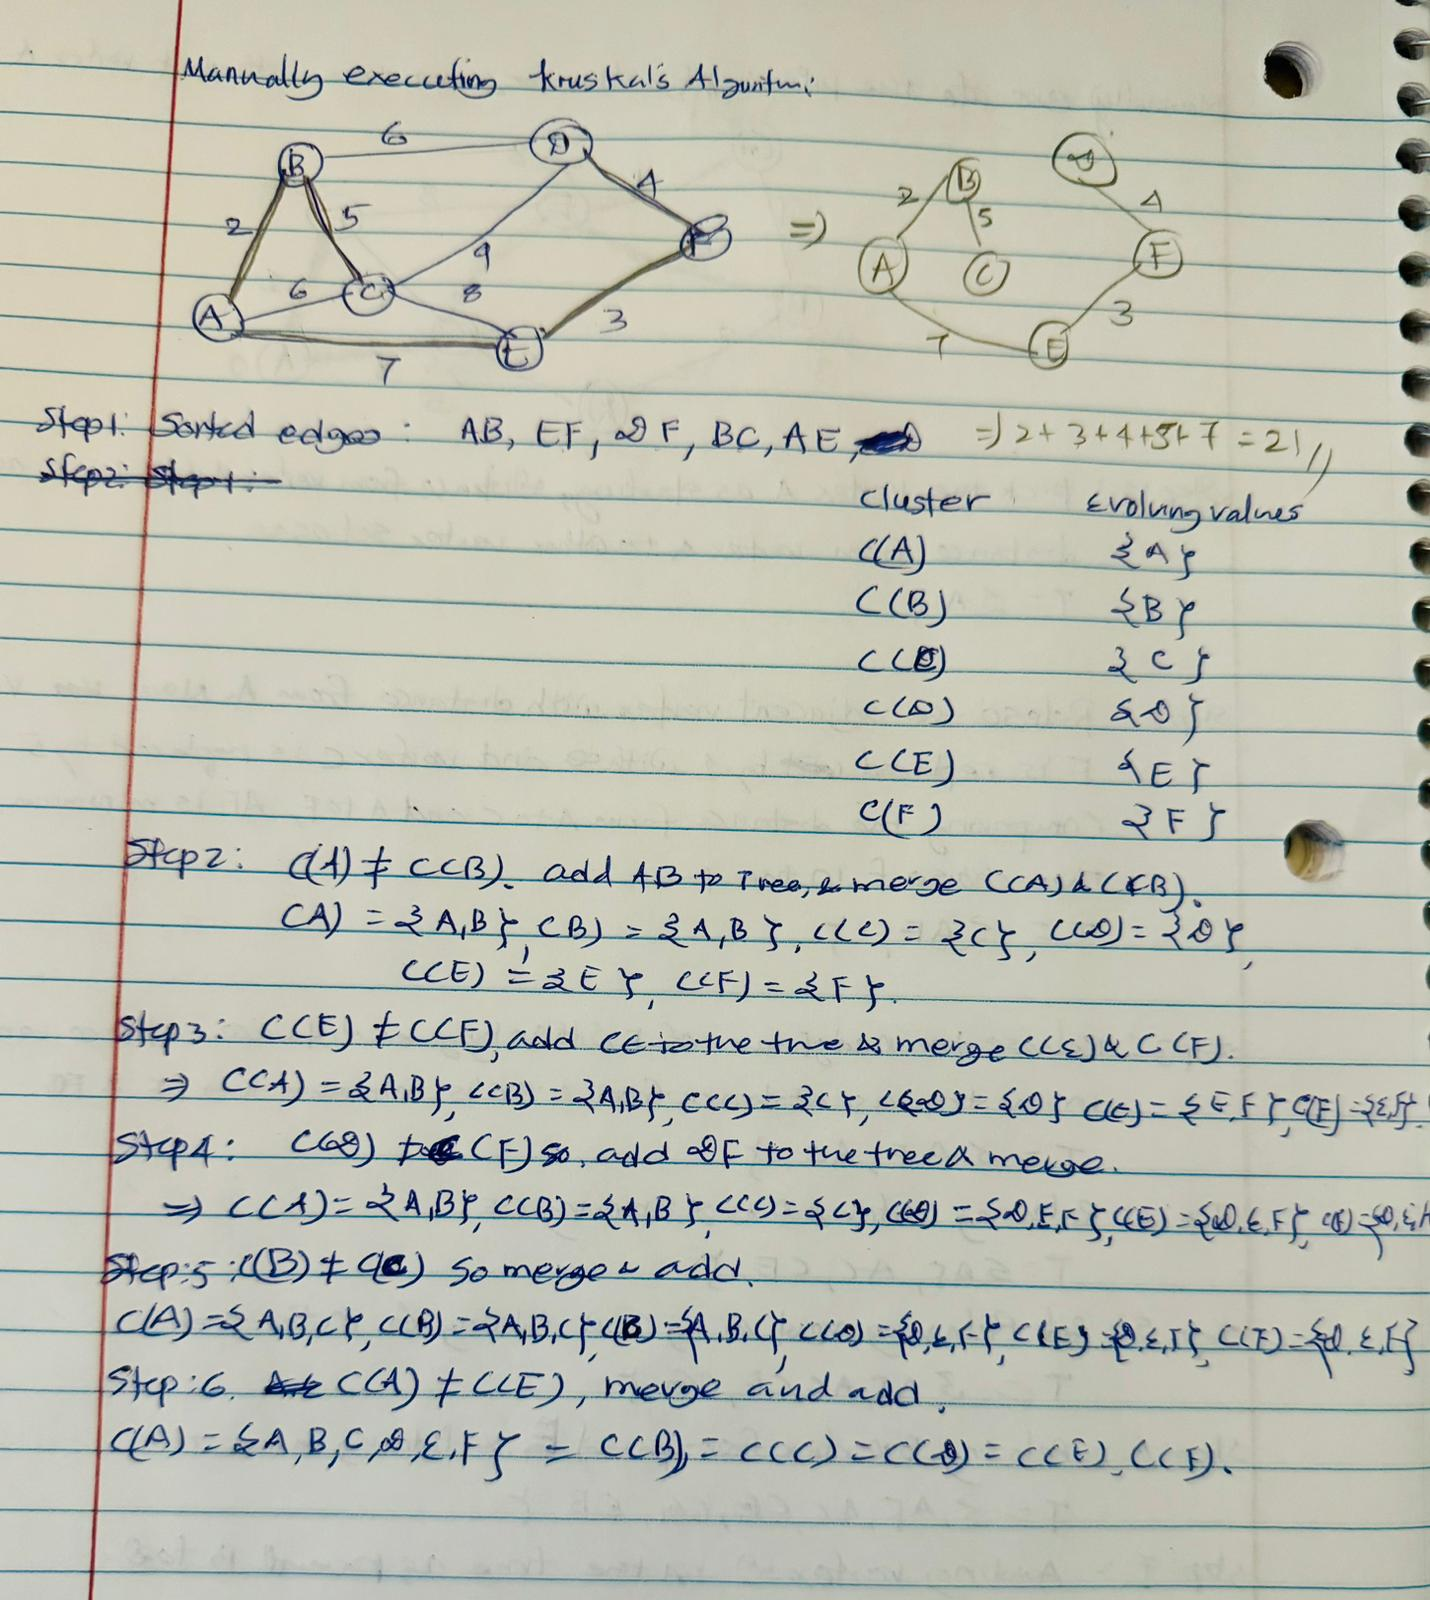 Manually executing Kruskal's Algoritm:
6
B
D
4
2
5
F
9
6
C
8
A
3
E
7
=>
D
2
B
4
5
A
C
F
3
7
E
Step1: Sorted edges: AB, EF, DF, BC, AE, => 2+3+4+5+7 = 21//
Step2: Step1:-
Cluster Evolving values
C(A) {A}
C(B) {B}
C(C) {C}
C(D) {D}
C(E) {E}
C(F) {F}
Step2: C(A) ≠ C(B). add AB to Tree, & merge C(A) & C(B).
C(A) = {A,B}, C(B) = {A,B}, C(C) = {C}, C(D) = {D},
C(E) = {E}, C(F) = {F}.
Step3: C(E) ≠ C(F), add CE to the tree & merge C(E) & C(F).
=> C(A) = {A,B}, C(B) = {A,B}, C(C) = {C}, C(D) = {D} C(E) = {E,F}, C(F) = {E,F}.
Step4: C(D) ≠ C(F) so, add DF to the tree & merge.
=> C(A) = {A,B}, C(B) = {A,B}, C(C) = {C}, C(D) = {D,E,F}, C(E) = {D,E,F}, C(F) = {D,E,F
Step:5: C(B) ≠ C(C) so merge & add.
C(A) = {A,B,C}, C(B) = {A,B,C}, C(B) = {A,B,C}, C(D) = {D,E,F}, C(E) = {D,E,F}, C(F) = {D,E,F}
Step:6. C(A) ≠ C(E), merge and add.
C(A) = {A,B,C,D,E,F} = C(B), = C(C) = C(D) = C(E), C(F).